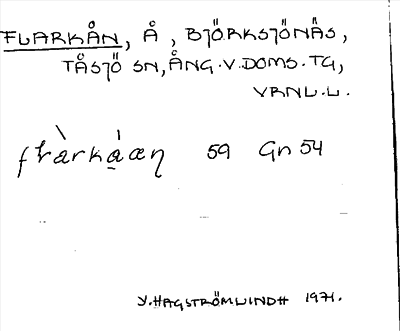 FLARKÅN, Å, BJÖRKSJÖNÄS,
TÅSJÖ SN, ÅNG.V.DOMS.TG,
VRNL.L.
59 Gn 54
Y.HAGSTRÖMLINDH 1971.